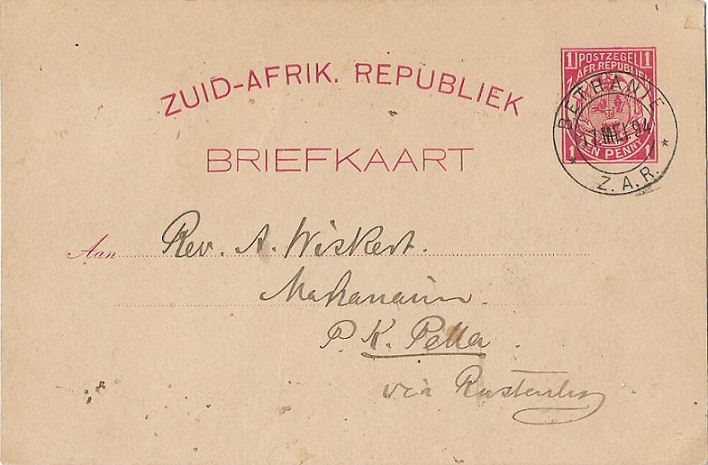 ZUID-AFRIK. REPUBLIEK
BRIEFKAART
1 POSTZEGEL 1
AFR. REPUBL
1 EEN PENNY 1
BETHANIE
MEI 94
Z.A.R.
Aan Rev. A. Wiskert.
Mahanaim.
P. K. Pella
via Rustenburg